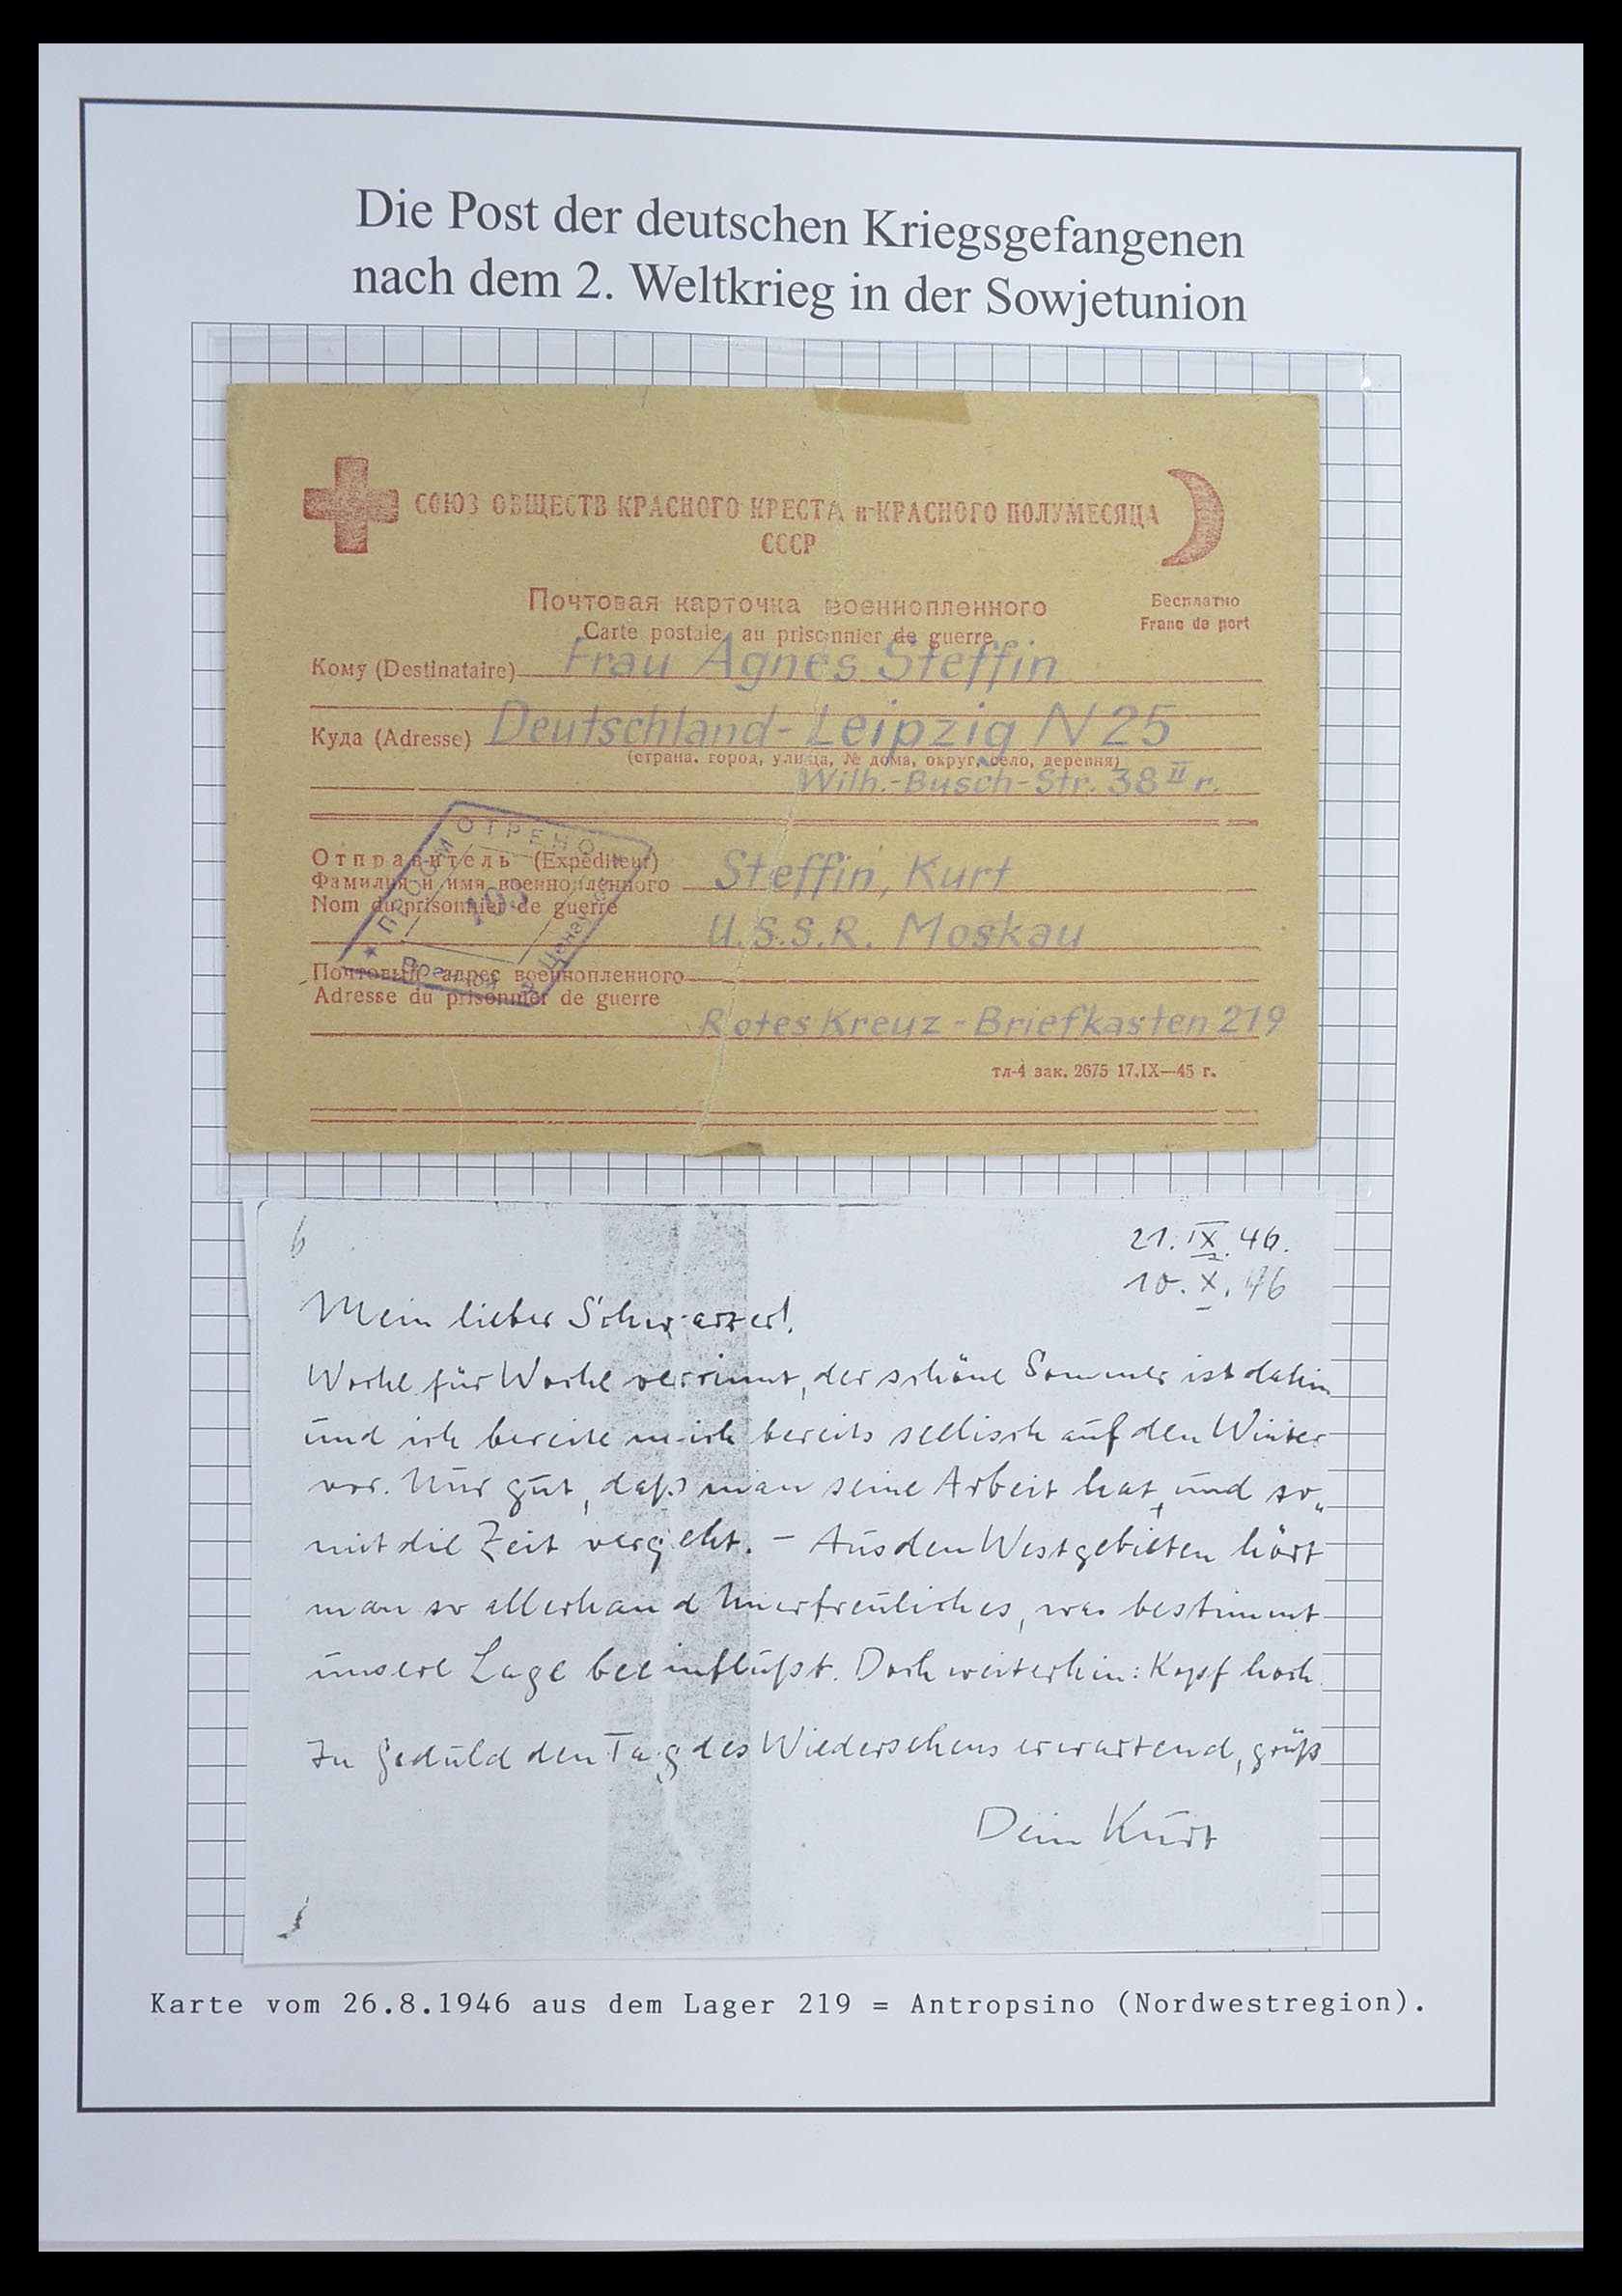 Die Post der deutschen Kriegsgefangenen
nach dem 2. Weltkrieg in der Sowjetunion
СОЮЗ ОБЩЕСТВ КРАСНОГО КРЕСТА и КРАСНОГО ПОЛУМЕСЯЦА
СССР
Почтовая карточка военнопленного
Carte postale au prisonnier de guerre
Бесплатно
Franc de port
Кому (Destinataire) Frau Agnes Steffin
Куда (Adresse) Deutschland-Leipzig N 25
(страна, город, улица, № дома, округ, село, деревня)
Wilh.-Busch-Str. 38 II r.
ПРОСМОТРЕНО
Военной Цензурой
Отправитель (Expéditeur)
Фамилия и имя военнопленного
Nom du prisonnier de guerre
Steffin, Kurt
U.S.S.R. Moskau
Почтовый адрес военнопленного
Adresse du prisonnier de guerre
Rotes Kreuz - Briefkasten 219
тл-4 зак. 2675 17.IX—45 г.
6
21. IX. 46.
10. X. 46
Mein lieber Schwarzer!
Woche für Woche verrinnt, der schöne Sommer ist dahin
und ich bereite mich bereits seelisch auf den Winter
vor. Nur gut, daß man seine Arbeit hat, und so
mit die Zeit vergeht. – Aus den Westgebieten hört
man so allerhand Unerfreuliches, was bestimmt
unsere Lage beeinflußt. Doch weiterhin: Kopf hoch
In Geduld den Tag des Wiedersehens erwartend, grüß
Dein Kurt
Karte vom 26.8.1946 aus dem Lager 219 = Antropsino (Nordwestregion).